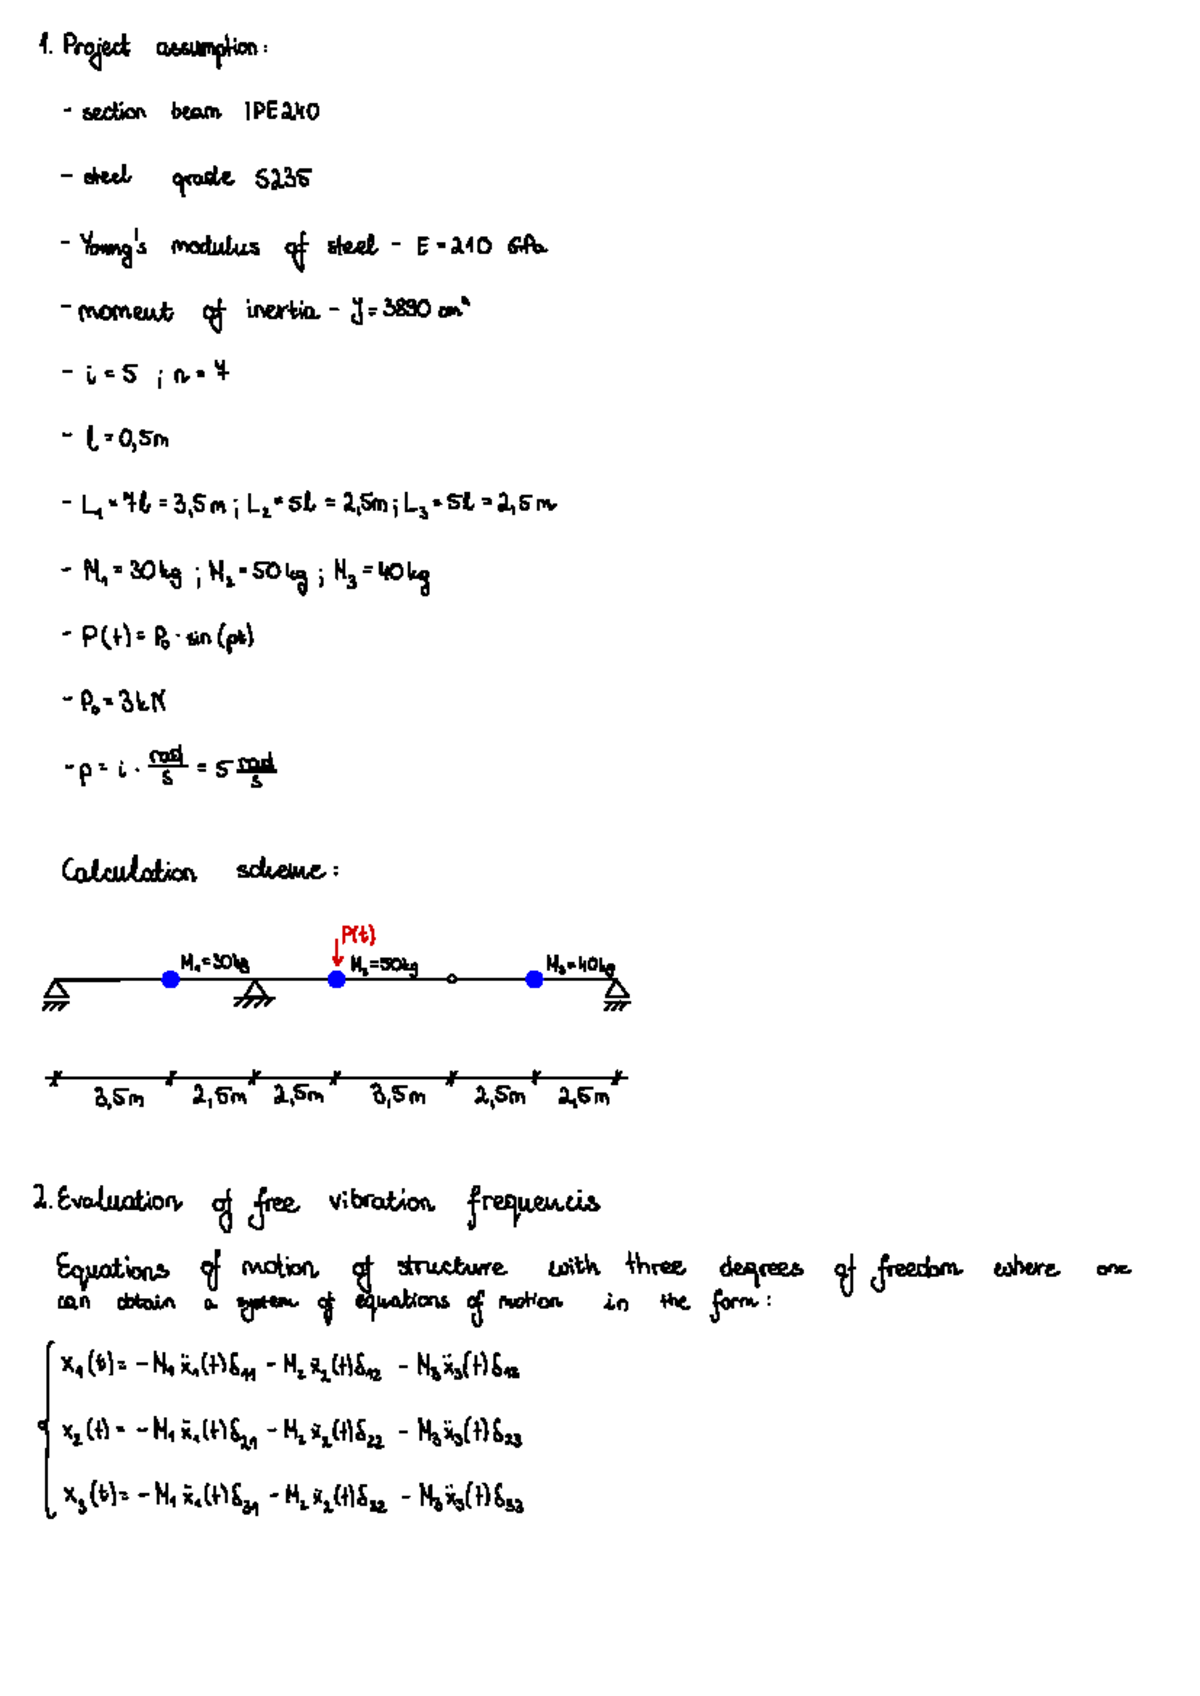 1. Project assumption:
- section beam IPE240
- steel grade S235
- Young's modulus of steel - E = 210 GPa
- moment of inertia - J = 3890 cm⁴
- i = 5 ; n = 7
- l = 0,5m
- L₁ = 7l = 3,5m ; L₂ = 5l = 2,5m ; L₃ = 5l = 2,5m
- M₁ = 30kg ; M₂ = 50kg ; M₃ = 40kg
- P(t) = P₀ · sin(pt)
- P₀ = 3kN
- p = i · rad/s = 5 rad/s
Calculation scheme:
P(t)
M₁=30kg M₂=50kg M₃=40kg
3,5m 2,5m 2,5m 3,5m 2,5m 2,5m
2. Evaluation of free vibration frequencis
Equations of motion of structure with three degrees of freedom where one
can obtain a system of equations of motion in the form:
x₁(t) = -M₁ẍ₁(t)δ₁₁ - M₂ẍ₂(t)δ₁₂ - M₃ẍ₃(t)δ₁₃
x₂(t) = -M₁ẍ₁(t)δ₂₁ - M₂ẍ₂(t)δ₂₂ - M₃ẍ₃(t)δ₂₃
x₃(t) = -M₁ẍ₁(t)δ₃₁ - M₂ẍ₂(t)δ₃₂ - M₃ẍ₃(t)δ₃₃